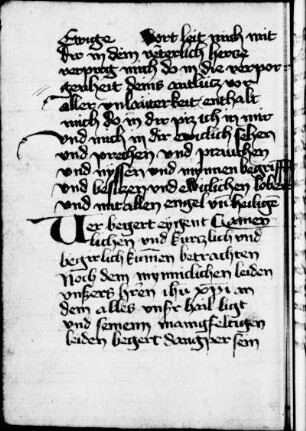 Ewige Wort leit mich mit
dir in dein veterlich hercz
verporg mich do in die verpor-
genheit deins antlucz vor
aller unlauterkeit enthalt
mich do in dir piz ich in mir
und mich in dir ewiclich sehen
und sprechen und prauchen
und nyssen und mynnen begriffen
und besiczen und ewiclichen loben
und mit allen engel vn heilige
Wer begert eygent
lichen und kurczlich und
begirlich kunnen betrachten
Noch dem mynniclichen leiden
unßers hren ihu xpi an
dem alles unsr hail ligt
und seinem manigfeltigen
leiden begert danckper sein